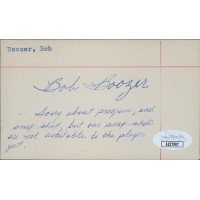 Boozer, Bob
Bob Boozer
.. Sorry about program, and
snap-shot, but our snap-shots
are not available to the player
yet.
JSA